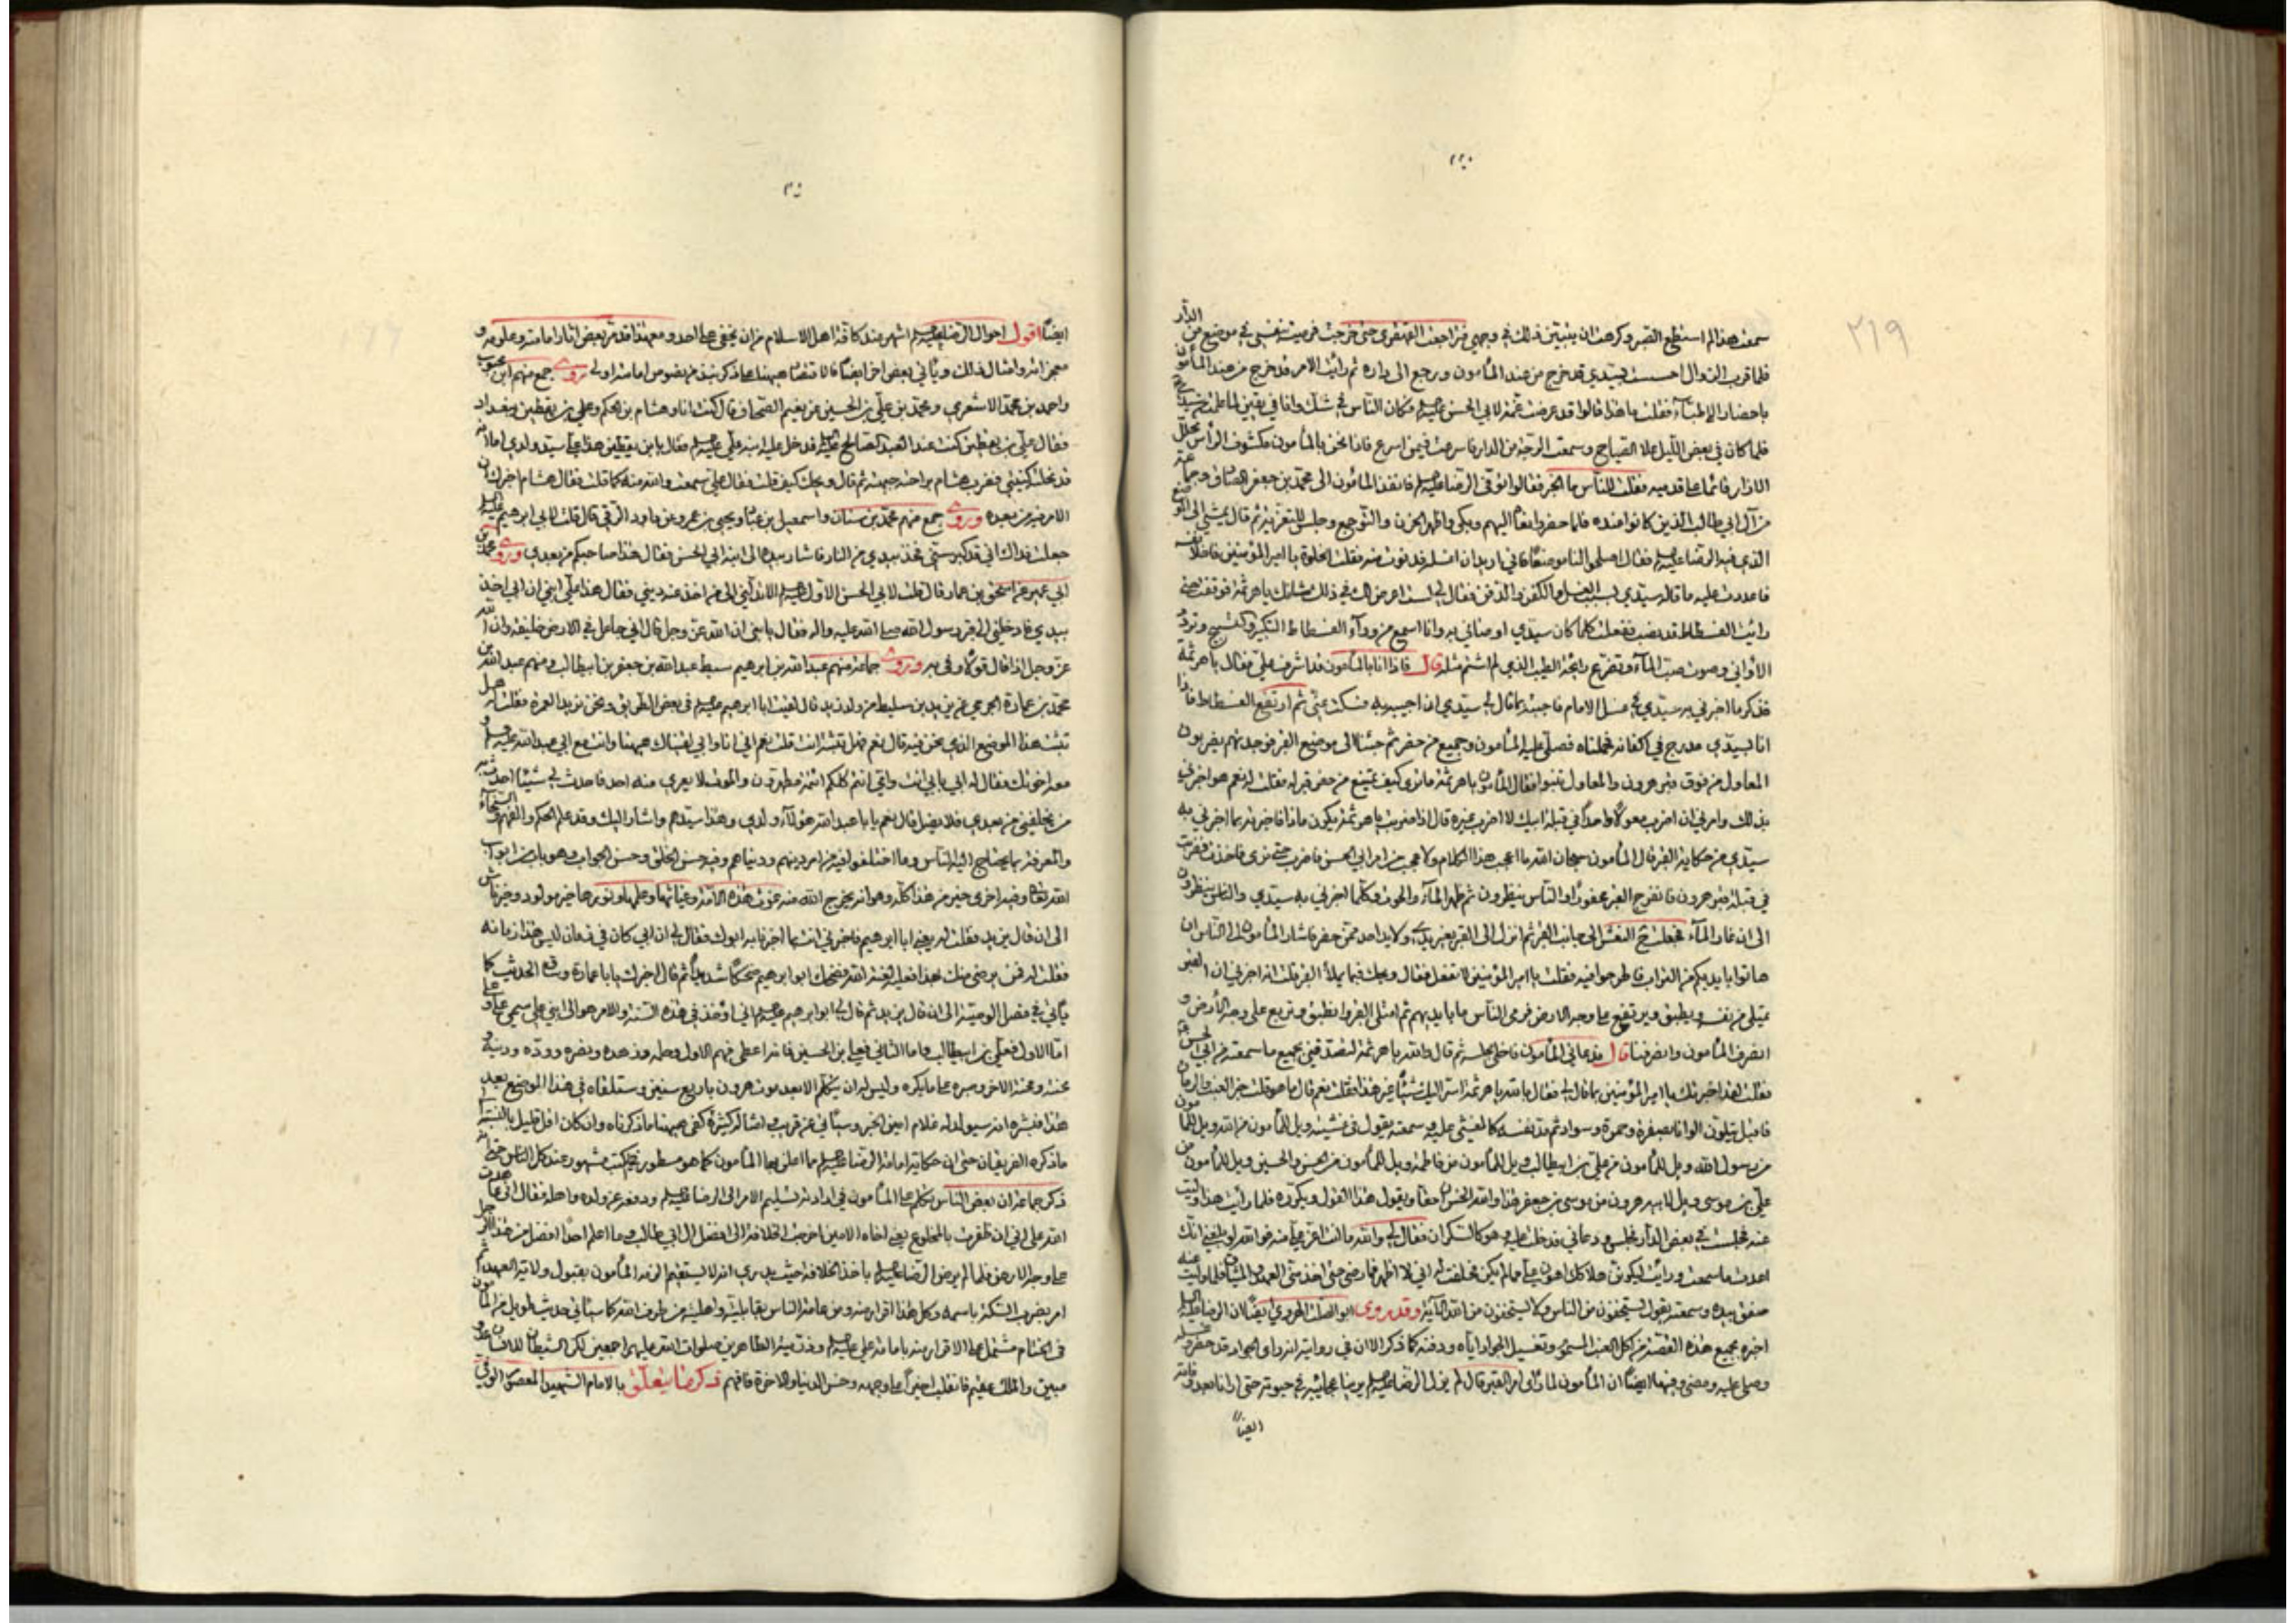 ٢٢٠
٢١٩
سمعت هذا لم استطع الصبر وكرهت ان يتبين ذلك في وجهي فتراجعت القهقرى حتى خرجت فرميت بنفسي في موضع من الدار
فلما قرب الزوال احسست بسيدي قد خرج من عند المأمون ورجع الى داره ثم رأيت الامر قد خرج من عند المأمون
باحضار الاطباء فقلت ما هذا قالوا قد عرضت علة لابي الحسن عليه السلم فكان الناس في شك وانا في يقين لما علمته
فلما كان في بعض الليل علا الصياح وسمعت الوجبة من الدار فاسرعت فيمن اسرع فاذا نحن بالمأمون مكشوف الرأس محلل
الازرار قائما على قدميه فقلت للناس ما الخبر فقالوا توفي الرضا عليه السلم فانفذ المأمون الى محمد بن جعفر الصادق وجماعة
من آل ابي طالب الذين كانوا عنده فلما حضروا نعاه اليهم وبكى واظهر الحزن والتوجع وجلس للتعزية ثم قال يمشي الى الموضع
الذي فيه الرضا عليه السلم فقال اصلحوا لنا موضعا فاني اريد ان اغسله فدنوت منه فقلت الخلوة يا امير المؤمنين فاخلا نفسه
فاعدت عليه ما قاله سيدي بسبب الغسل والكفن والدفن فقال لي لست اعرض لك في ذلك شأنك يا هرثمة فوقفت حتى
رايت الفسطاط قد نصب ففعلت كلما كان سيدي اوصاني به وانا اسمع من وراء الفسطاط التكبير والتسبيح وتردد
الاواني وصوت صب الماء وتضوع رائحة الطيب الذي لم اشم مثله قال فاذا انا بالمأمون قد اشرف علي فقال يا هرثمة
فذكر ما اخبرني به سيدي في غسل الامام فاجبته بما قال لي سيدي ان اجيبه به فسكت عني ثم ارتفع الفسطاط فاذا
انا بسيدي مدرج في اكفانه فحملناه فصلى عليه المأمون وجميع من حضر ثم جئنا الى موضع القبر فوجدتهم يضربون
المعاول من فوق قبر هرون والمعاول تنبوا فقال المأمون يا هرثمة ما ترى كيف تمتنع من حفر قبر له فقلت له نعم هو اخبرني
بذلك وامرني ان اضرب معولا واحدا في قبلة ابيك لا اضرب غيره قال اذا ضربت يا هرثمة يكون ماذا فاخبرته بما اخبرني به
سيدي من حكاية القبر قال المأمون سبحان الله ما اعجب هذا الكلام ولا عجب من امر ابي الحسن فاضرب حتى نرى فاخذت فضربت
في قبلة قبر هرون فانفرج القبر محفورا والناس ينظرون ثم ظهر الماء والحوت وكلما اخبرني به سيدي والناس ينظرون
الى ان غار الماء فجعلت النعش الى جانب القبر ثم انزل الى القبر بغير يدي ولا يد احد ممن حضر فاشار المأمون الى الناس ان
هاتوا بايديكم من التراب فاطرحوا فيه فقلت يا امير المؤمنين لا تفعل فقال ويحك فبما يملأ القبر قلت انه اخبرني ان القبر
يمتلئ من نفسه ويطبق ويرتفع على وجه الارض فرمى الناس ما بايديهم ثم امتلئ القبر وانطبق وتربع على وجه الارض و
انصرف المأمون وانصرفنا قال فدعاني المأمون فاخلى مجلسه ثم قال والله يا هرثمة لتصدقني بجميع ما سمعته من ابي الحسن
فقلت لقد اخبرتك يا امير المؤمنين بما قال لي فقال بالله يا هرثمة اسر اليك شيئا غير هذا فقلت نعم قال ما هو قلت خبر العنب والرمان
فاقبل يتلون الوانا بصفرة وحمرة وسواد ثم مد نفسه كالمغشي عليه وسمعته يقول في غشيته ويل للمأمون من الله ويل للمأمون
من رسول الله ويل للمأمون من علي بن ابيطالب ويل للمأمون من فاطمة ويل للمأمون من الحسن والحسين ويل للمأمون من
علي بن موسى ويل لابيه هرون من موسى بن جعفر هذا والله الخسران حقا ويقول هذا القول ويكرره فلما رأيت هذا وليت
عنه فجلست في بعض الدار فجلس ودعاني فدخلت عليه وهو كالسكران فقال لي والله ما انت اعز علي منه فوالله لو بلغني انك
اعدت ما سمعت ورأيت ليكونن هلاكك اهون علي مما لم يكن فحلفت له اني لا اظهر فما رضي حتى اخذ مني العهد والميثاق فلما وليت عنه
صفق بيده وسمعته يقول يستخفون من الناس ولا يستخفون من الله الآية وقد روى ابو الصلت الهروي ايضا ان الرضا عليه السلم
اخبره بجميع هذه القصة من اكل العنب المسموم وتغسيل الجواد اياه ودفنه كما ذكر الا ان في رواية انه رأى الجواد قد حضر وغسله
وصلى عليه ومضى وفيها ايضا ان المأمون لما رأى امر القبر قال لم يزل الرضا عليه السلم يرينا عجائبه في حيوته حتى ارانا بعد وفاته
ايضا
ايضا اقول احوال الرضا عليه السلم اشهر عند كافة اهل الاسلام من ان يخفى على احد ومع هذا قد مر بعض آثار امامته وعلومه و
معجزاته وامثال ذلك ويأتي بعض اخر ايضا فالاقتصار هيهنا على ذكر نبذ من نصوص امامته اولى روى جمع منهم ابن محبوب
واحمد بن محمد الاشعري ومحمد بن علي بن الحسين عن نعيم الصحاف قال كنت انا وهشام بن الحكم وعلي بن يقطين ببغداد
فقال علي بن يقطين كنت عند العبد الصالح عليه السلم فدخل عليه ابنه علي عليه السلم فقال يا ابن يقطين هذا علي سيد ولدي اما انه
قد نحلته كنيتي فضرب هشام براحته جبهته ثم قال ويحك كيف قلت فقال علي سمعت والله منه كما قلت فقال هشام اخبرك ان
الامر فيه من بعده وروى جمع منهم محمد بن سنان واسمعيل بن عباد ويحيى بن عمرو عن داود الرقي قال قلت لابي ابرهيم عليه السلم
جعلت فداك اني قد كبر سني فخذ بيدي من النار فاشار بيده الى ابنه ابي الحسن فقال هذا صاحبكم من بعدي وروى محمد بن
ابي عمير عن اسحق بن عمار قال قلت لابي الحسن الاول عليه السلم الا تدلني الى من اخذ عنه ديني فقال هذا علي ابني ان ابي اخذ
بيدي فادخلني الى قبر رسول الله صلى الله عليه واله فقال يا بني ان الله عز وجل قال اني جاعل في الارض خليفة وان الله
عز وجل اذا قال قولا وفى به وروى جماعة منهم عبد الله بن ابرهيم سبط عبد الله بن جعفر بن ابيطالب ومنهم عبد الله بن
محمد بن عمارة الجرمي عن يزيد بن سليط من ولد زيد قال لقيت ابا ابرهيم عليه السلم في بعض الطريق ونحن نريد العمرة فقلت له هل
تثبت هذا الموضع الذي نحن فيه قال نعم فهل تثبته انت قلت نعم اني انا وابي لقيناك هيهنا وانت مع ابي عبد الله عليه السلم و
معه اخوتك فقال له ابي بابي انت وامي انتم كلكم ائمة مطهرون والموت لا يعرى منه احد فاحدث لي شيئا احدث به
من يخلفني من بعدي فلا يضل قال نعم يا با عبد الله هؤلاء ولدي وهذا سيدهم واشار اليك وقد علم الحكم والفهم والسخاء
والمعرفة بما يحتاج اليه الناس وما اختلفوا فيه من امر دينهم ودنياهم وفيه حسن الخلق وحسن الجواب وهو باب من ابواب
الله تعالى وفيه اخرى خير من هذا كله وهو انه يخرج الله منه غوث هذه الامة وغياثها وعلمها ونورها خير مولود وخير ناش
الى ان قال يزيد فقلت له يعني ابا ابرهيم فاخبرني انت بما اخبرنا به ابوك فقال لي ان ابي كان في زمان ليس هذا زمانه
فقلت له فمن يرضى منك بهذا فعليه لعنة الله فضحك ابو ابرهيم ضحكا شديدا ثم قال اخبرك يا با عمارة وساق الحديث كما
يأتي في فصل الوصية الى ان قال يزيد ثم قال لي ابو ابرهيم عليه السلم اني اؤخذ في هذه السنة والامر هو الى ابني علي سمي علي وعلي
اما الاول فعلي بن ابيطالب واما الثاني فعلي بن الحسين فانه اعطي فهم الاول وحلمه وزهده ونصره ووده ودينه و
محنته ومحنة الآخر وصبره على ما يكره وليس له ان يتكلم الا بعد موت هرون باربع سنين وستلقاه في هذا الموضع بعد
هذا فبشره انه سيولد له غلام امين الخبر وسيأتي عن قريب وامثاله كثيرة كفى هيهنا ما ذكرناه وان كان اقل قليل بالنسبة الى
ما ذكره الفريقان حتى ان حكاية امامة الرضا عليه السلم مما اعلن بها المأمون كما هو مسطور في كتب مشهور عند كل الناس حتى انه
ذكر جماعة ان بعض الناس تكلم على المأمون في ارادته تسليم الامر الى الرضا عليه السلم ودفعه عن ولده واهله فقال اني عاهدت
الله على اني ان ظفرت بالمخلوع يعني اخاه الامين اخرجت الخلافة الى افضل ال ابي طالب وما اعلم احدا افضل من هذا الرجل
على وجه الارض فلما لم يرض الرضا عليه السلم باخذ الخلافة حيث يدري انه لا يستقيم الزمه المأمون بقبول ولاية العهد ثم
امر بضرب السكة باسمه وكل هذا اقرار منه ومن عامة الناس بقابليته واهليته من طرف الله كما سيأتي حديث طويل من المأمون
في الختام مشتمل على الاقرار منه بامامة علي عليه السلم وذريته الطاهرين صلوات الله عليهم اجمعين لكن الشيطان للانسان عدو
مبين والملك عقيم فانقلب اخيرا على وجهه وخسر الدنيا والاخرة فافهم ذكر ما يتعلق بالامام الشهيد المعصوم الوفي